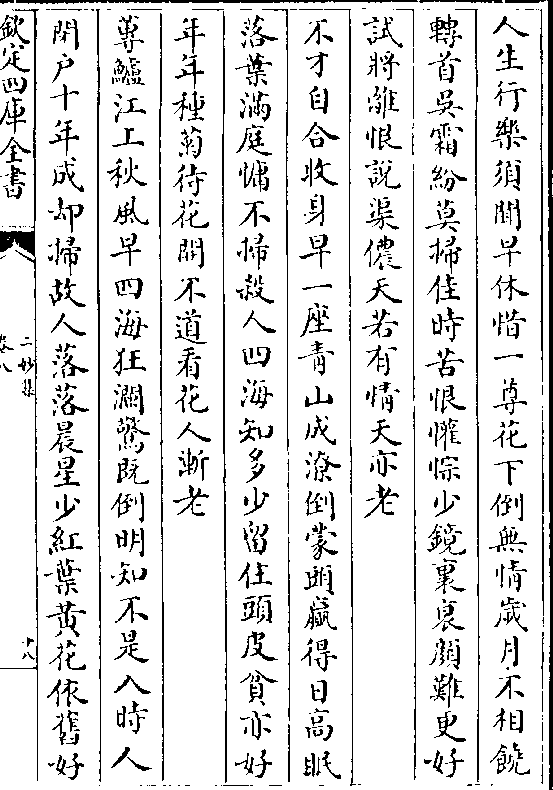 人生行樂須聞早休惜一尊花下倒無情歲月不相饒
轉首吳霜紛莫掃佳時苦恨懽悰少鏡裏衰顔難更好
試將離恨說渠儂天若有情天亦老
不才自合收身早一座青山成潦倒蒙頭贏得日高眠
落葉滿庭慵不掃殺人四海知多少留住頭皮貧亦好
年年種菊待花開不道看花人漸老
蓴鱸江上秋風早四海狂瀾驚既倒明知不是入時人
閉户十年成却掃故人落落晨星少紅葉黄花依舊好
欽定四庫全書
二妙集
卷八
十八